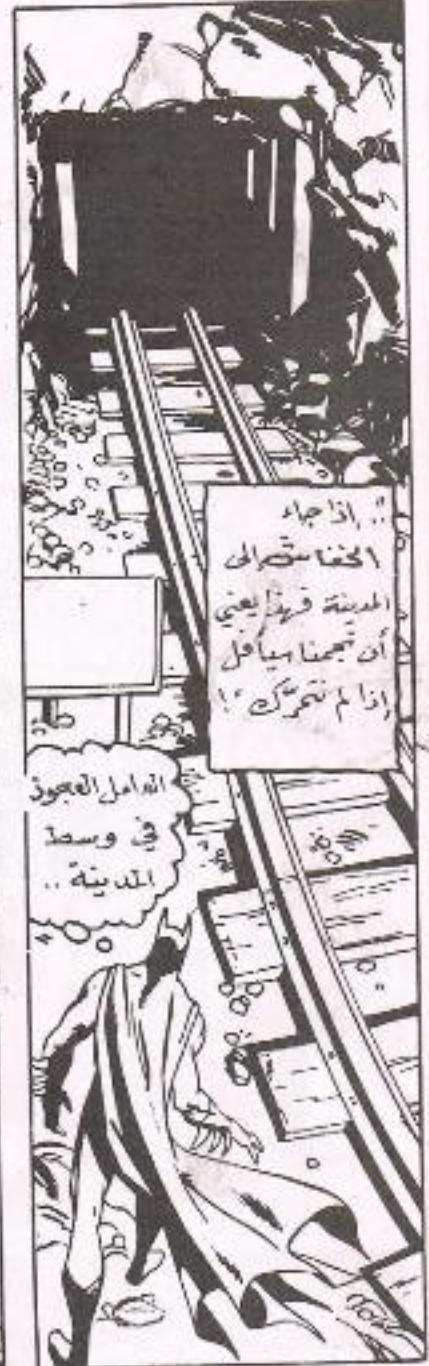 ".. إذا جاء
الخفاش إلى
المدينة فهذا يعني
أن نجمنا سيأفل
إذا لم نتحرّك"!
العامل العجوز
في وسط
المدينة ..